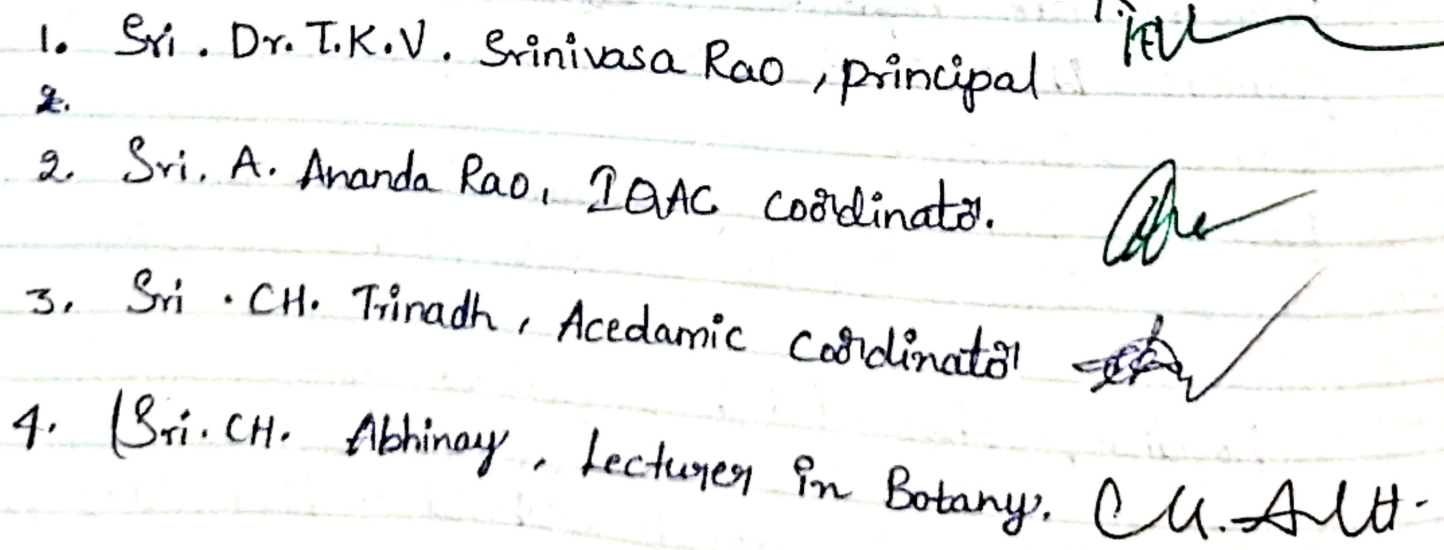 1. Sri. Dr. T.K.V. Srinivasa Rao, principal
2.
2. Sri. A. Ananda Rao, IQAC coordinator.
3. Sri. CH. Trinadh, Acedamic coordinator
4. (Sri. CH. Abhinay, Lecturer in Botany.